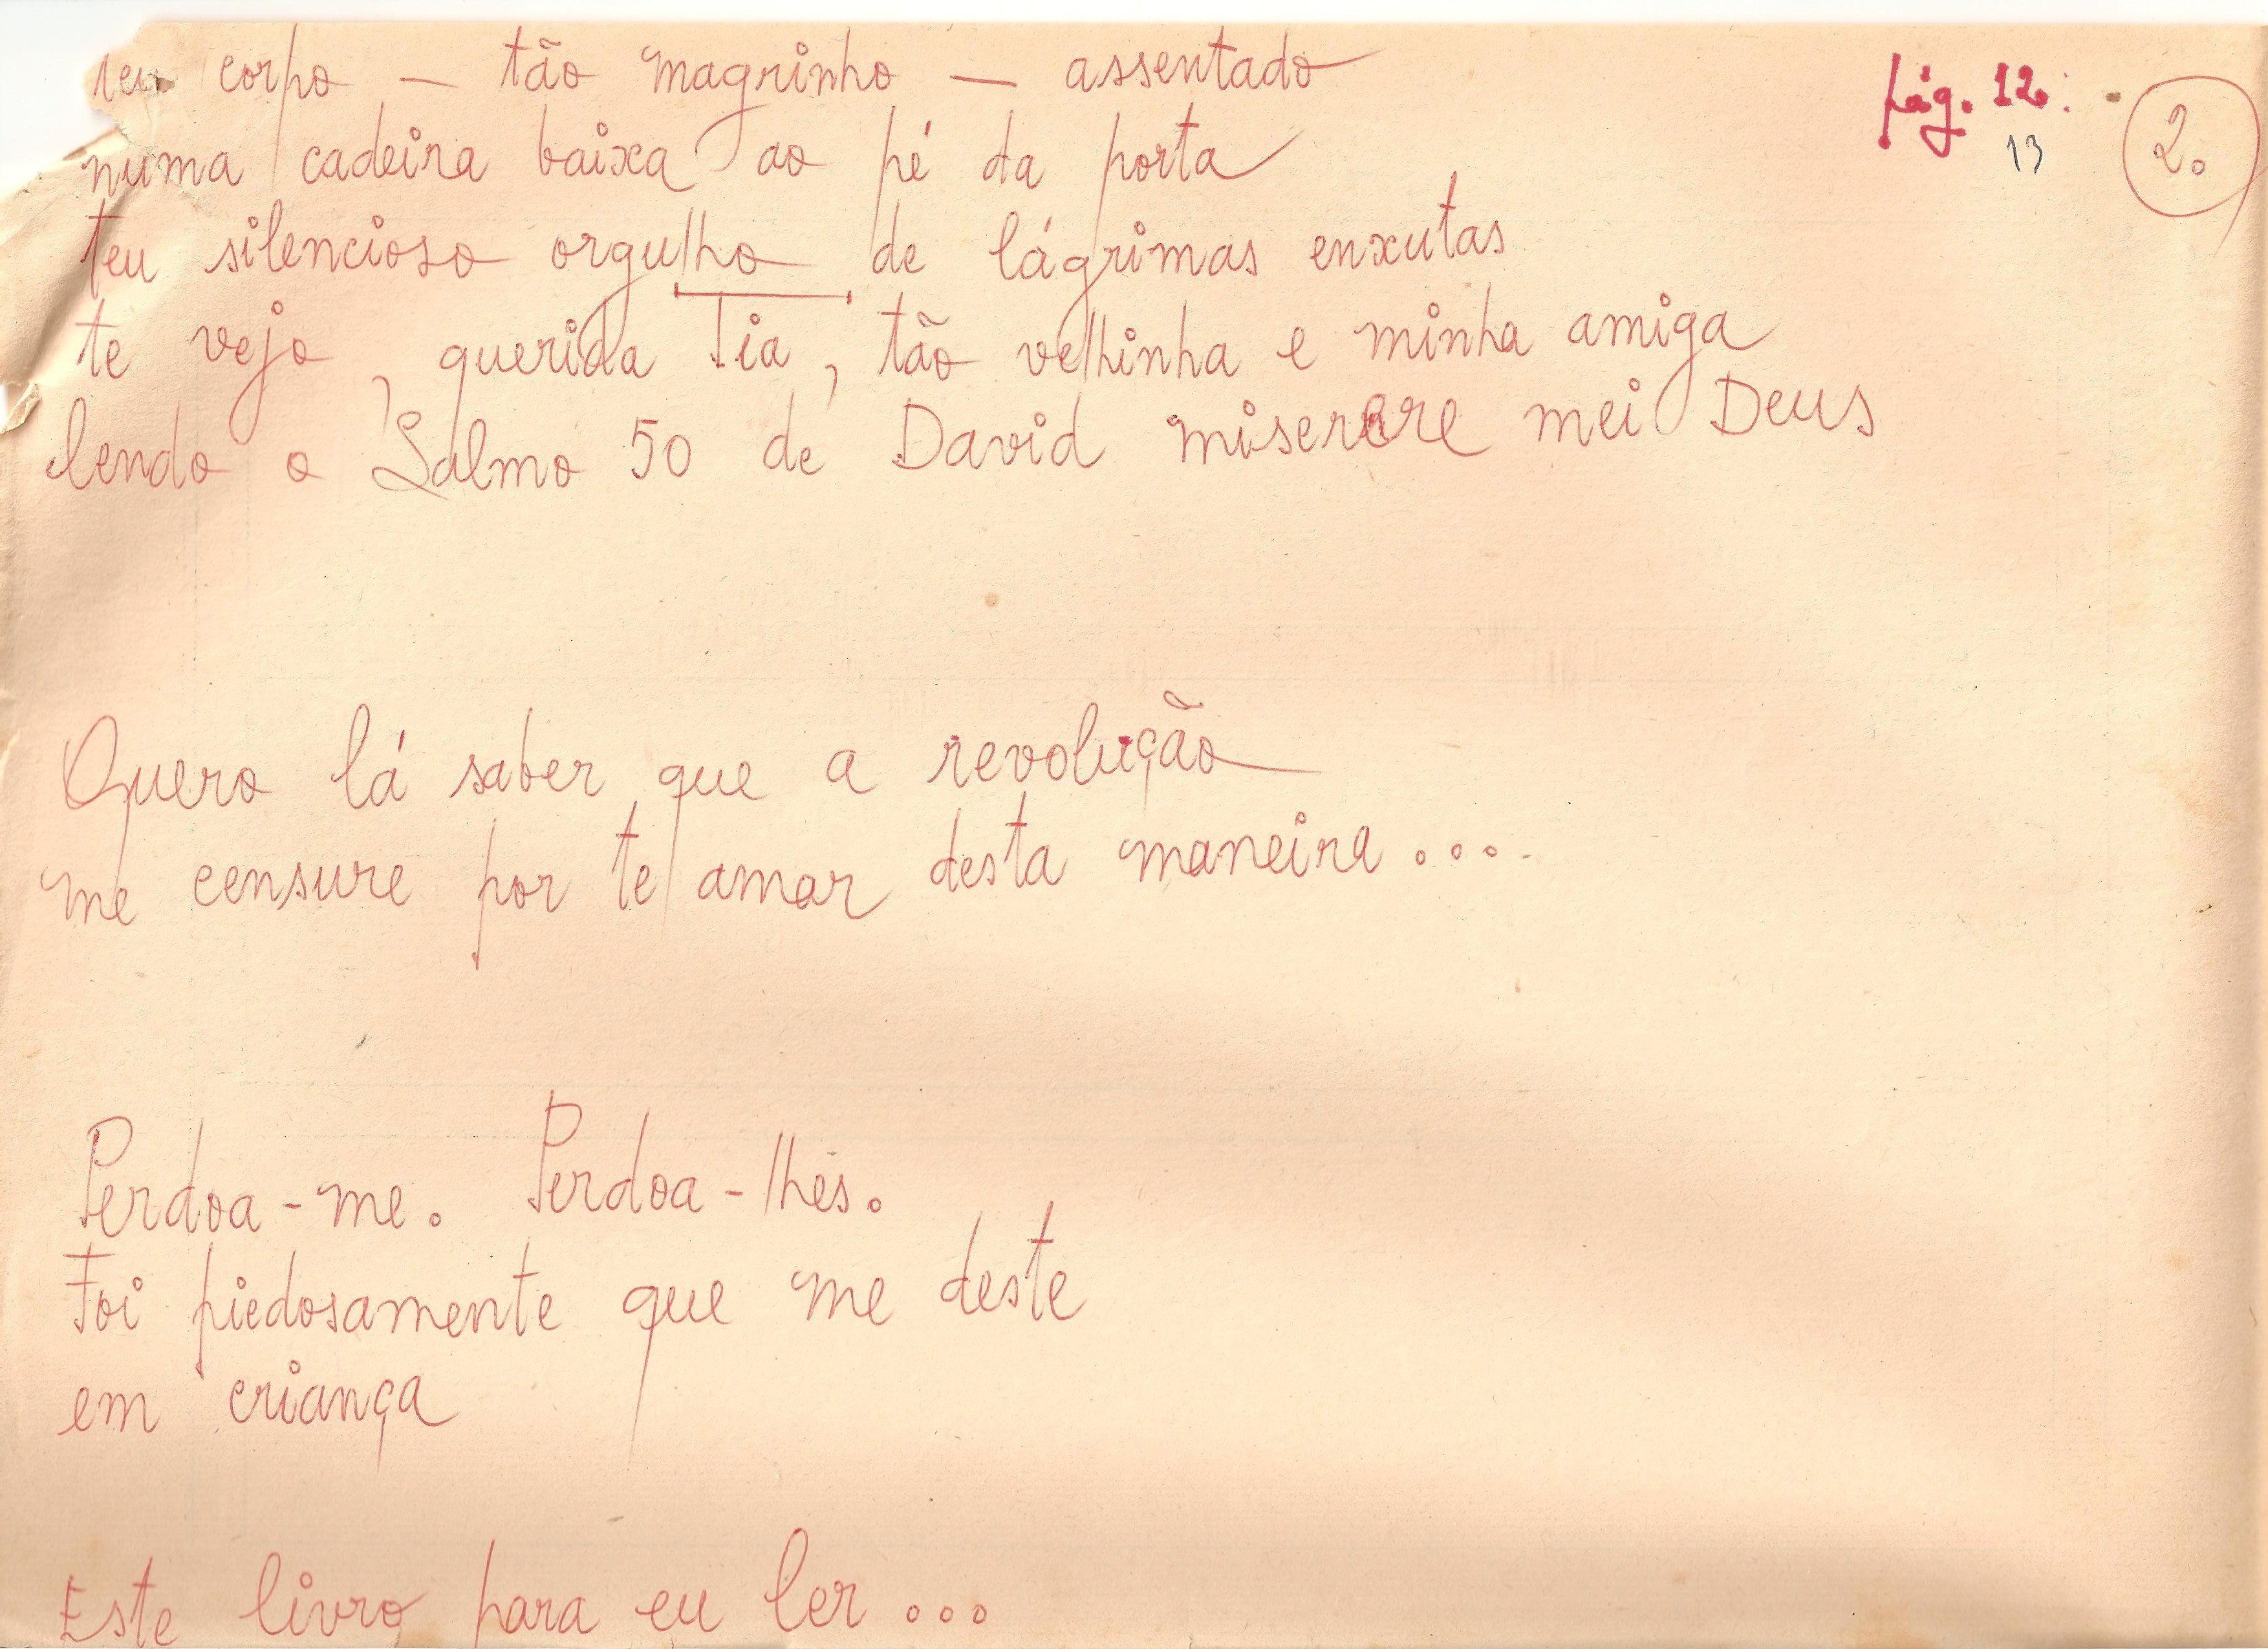 teu corpo — tão magrinho — assentado
pág. 12.
13
2.
numa cadeira baixa ao pé da porta
teu silencioso orgulho de lágrimas enxutas
te vejo, querida Tia, tão velhinha e minha amiga
lendo o Salmo 50 de David miserere mei Deus
Quero lá saber que a revolução
me censure por te amar desta maneira....
Perdoa-me. Perdoa-lhes.
Foi piedosamente que me deste
em criança
Este livro para eu ler...